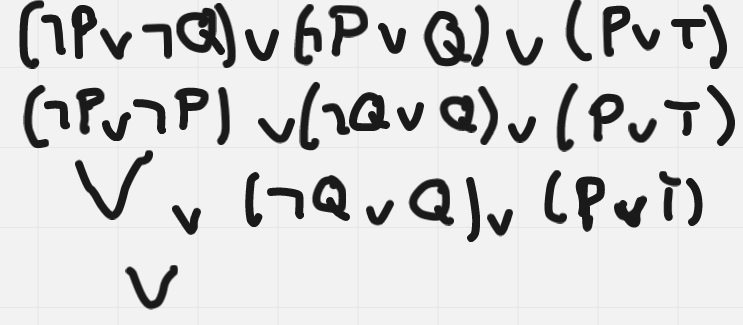 (¬P∨¬Q)∨(¬P∨Q)∨(P∨T)
(¬P∨¬P)∨(¬Q∨Q)∨(P∨T)
V∨(¬Q∨Q)∨(P∨i)
V